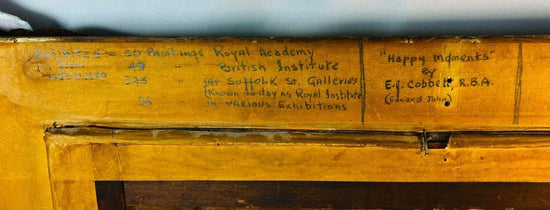 Exhibited - 30 Paintings Royal Academy
48 " British Institute
345 " (at Suffolk St. Galleries
(Known today as Royal Institute
36 in various Exhibitions
"Happy moments"
by
E.J. Cobbett, R.B.A.
(Edward John)